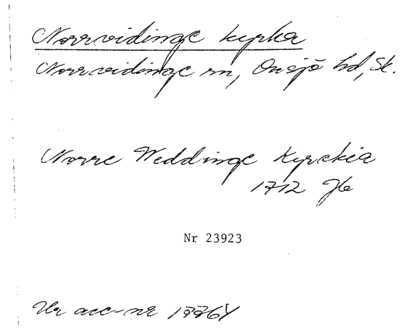 Norrvidinge kyrka
Norrvidinge sn, Onsjö hd, Sk.
Norre Weddinge Kyrckia
1712
Nr 23923
Ur acc-nr